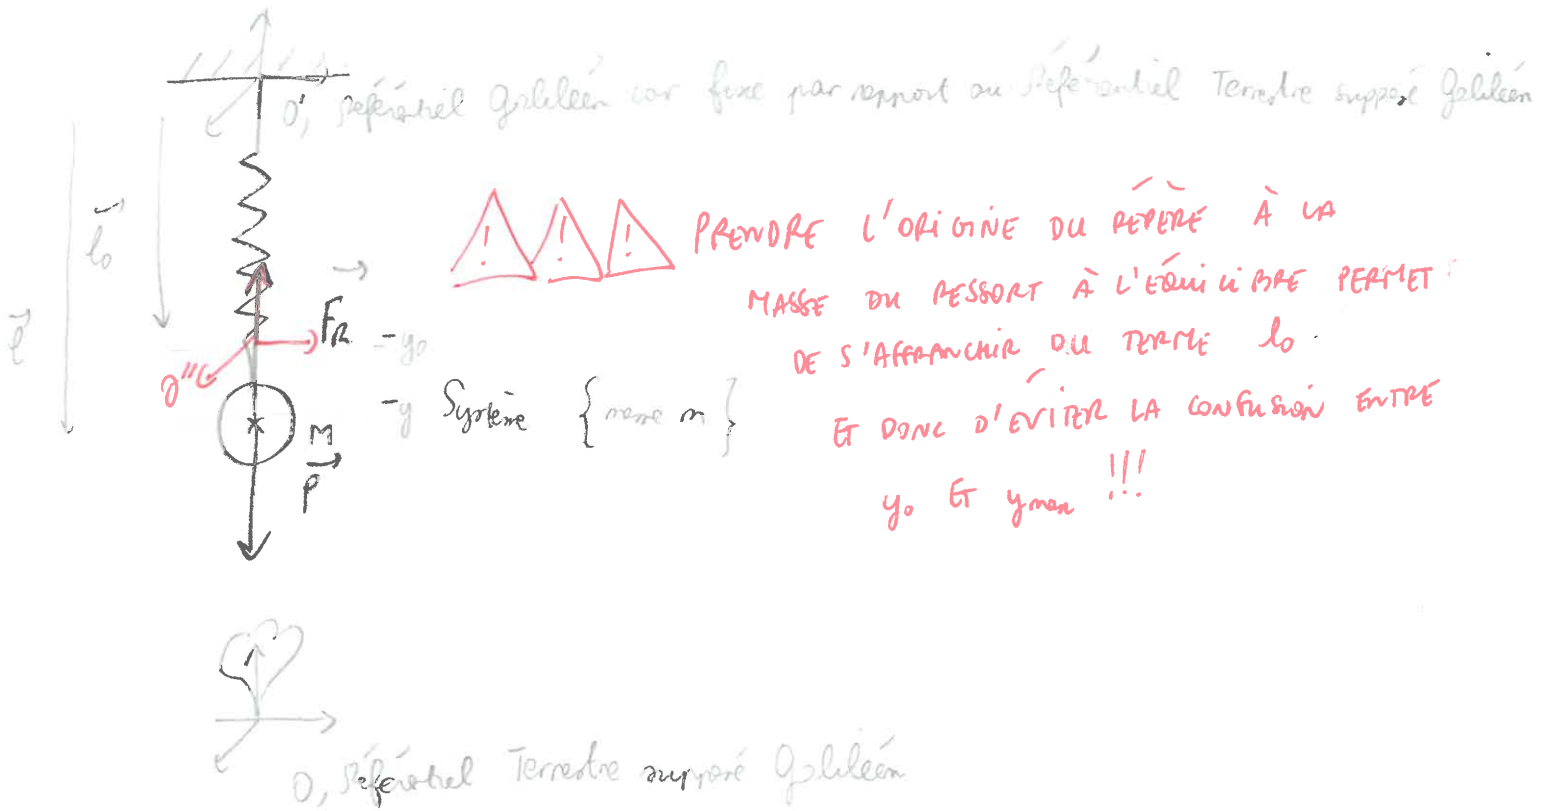 O', Référentiel Galiléen car fixe par rapport au Référentiel Terrestre supposé Galiléen
l₀
PRENDRE L'ORIGINE DU REPÈRE À LA
MASSE DU RESSORT À L'ÉQUILIBRE PERMET
l
F_R
-y₀
DE S'AFFRANCHIR DU TERME l₀.
O''
-y Système {masse m}
ET DONC D'ÉVITER LA CONFUSION ENTRE
M
P
y₀ ET ymax !!!
O, Référentiel Terrestre supposé Galiléen